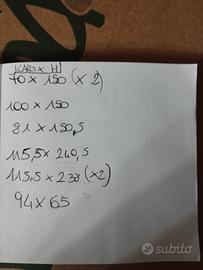 LARG x H
70 x 150 (x 2)
100 x 150
81 x 150,5
115,5 x 240,5
115,5 x 238 (x2)
94 x 65
subito